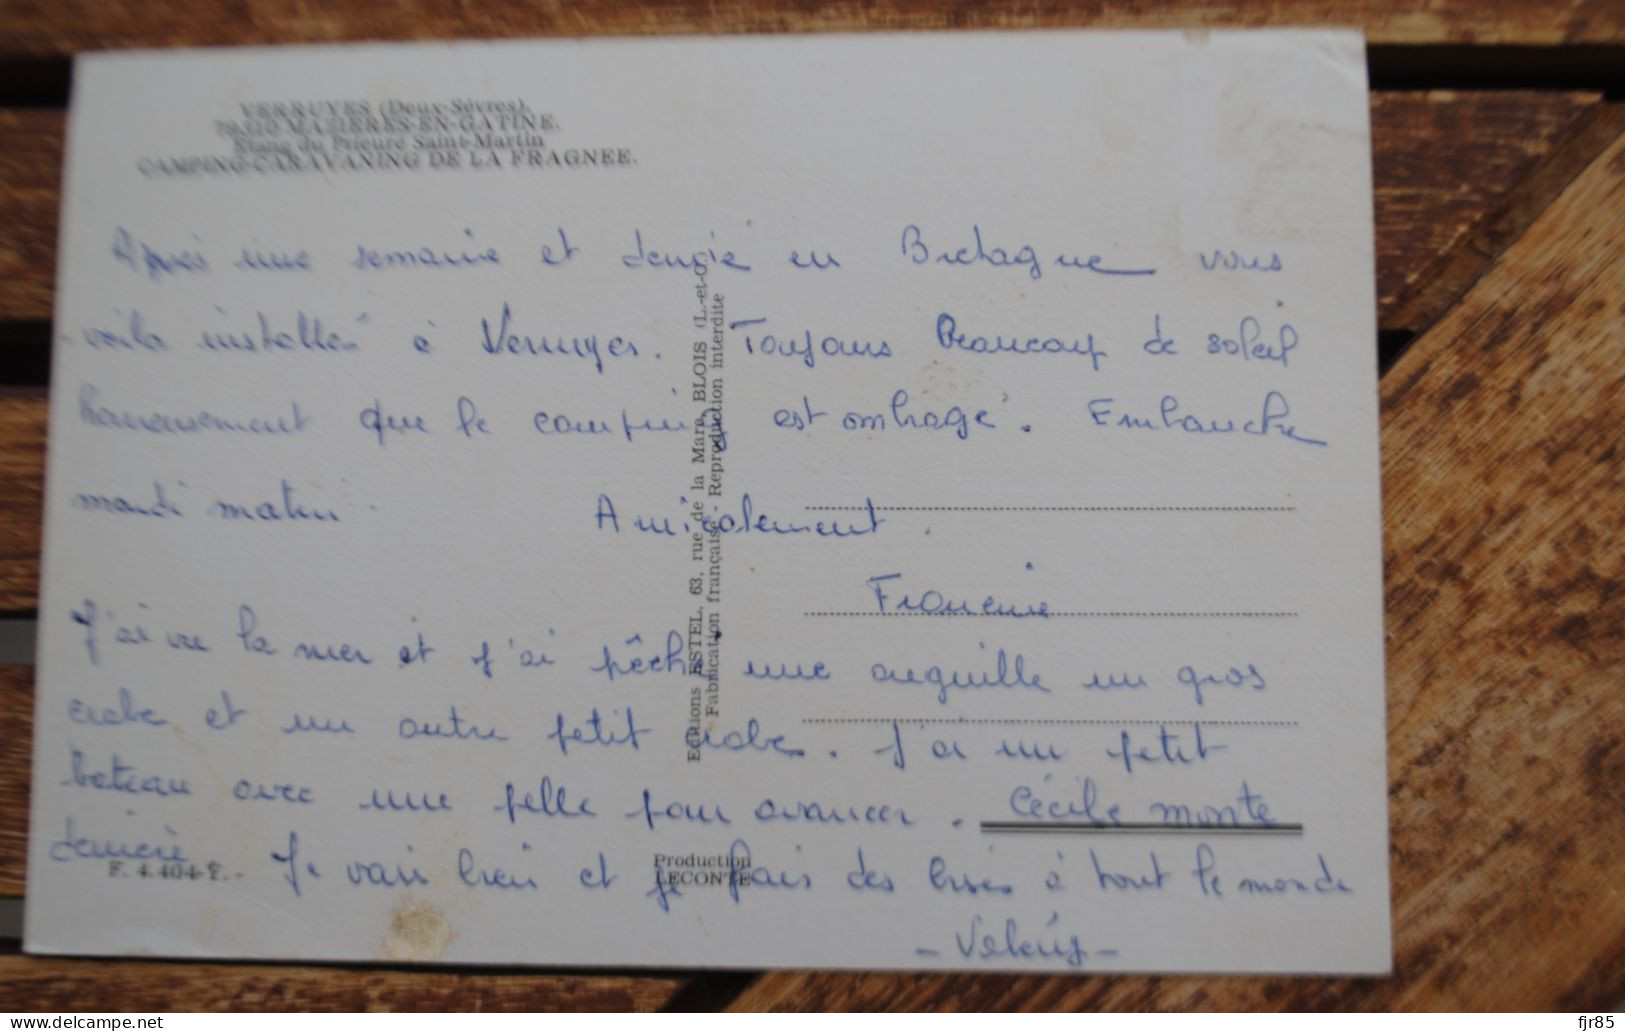 VERRUYES (Deux-Sèvres).
79310 MAZIERES-EN-GATINE.
Etang du Prieuré Saint-Martin
CAMPING-CARAVANING DE LA FRAGNEE.
Après une semaine et demie en Bretagne nous
voilà installés à Verruyes. Toujours Beaucoup de soleil
heureusement que le camping est ombragé. Embauche
mardi matin.
Amicalement.
Francine
J'ai vu la mer et j'ai pêché une anguille un gros
crabe et un autre petit crabe. J'ai un petit
bateau avec une pelle pour avancer. Cécile monte
derrière. Je vais bien et je fais des bises à tout le monde
Editions ESTEL, 63, rue de la Mare, BLOIS (L.-et-C.)
Fabrication française - Reproduction interdite
F. 4.404-F. -
Production
LECONTE
fjr85